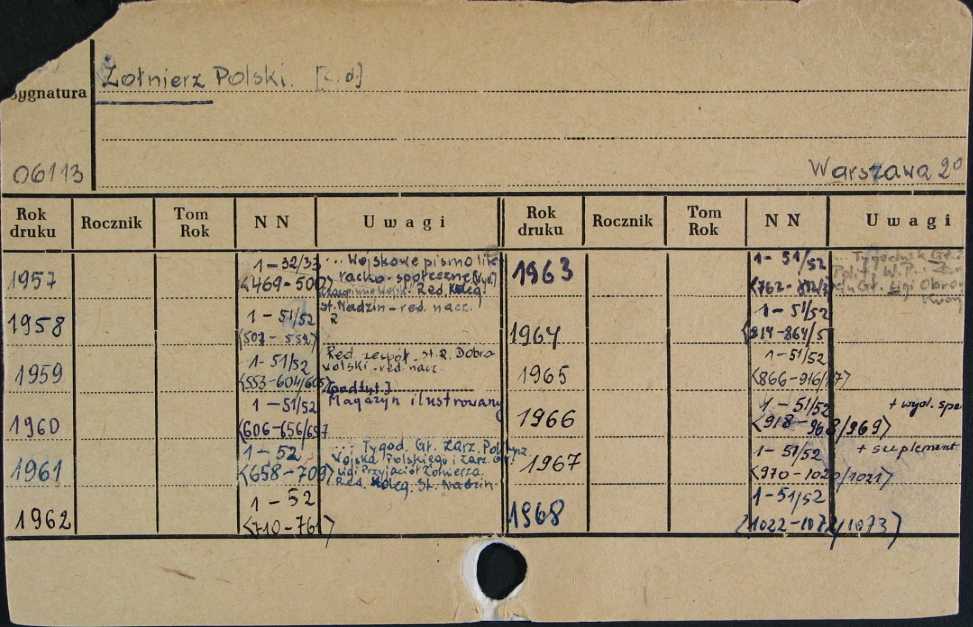 Żołnierz Polski.
Sygnatura
06113
Warszawa 20
Rok druku Rocznik Tom Rok NN Uwagi
1957 1-32/33 ... Wojskowe pismo lite-
<469-500> racko-społeczne
Red. Koleg.
St. Nadzin - red. nacz.
1958 1-51/52
1959 1-51/52 Red. zespół. St. R. Dobro
<553-604/605> wolski - red. nacz.
[podtyt.]
1960 1-51/52 Magazyn ilustrowany
<606-656/657
1961 1-52 ... Tygod. Gł. Zarz. Politycz.
<658-709> Wojska Polskiego i Zarz. Gł.
Ligi Przyjaciół Żołnierza
Red. Koleg. St. Nadzin
1962 1-52
<710-761>
Rok druku Rocznik Tom Rok NN Uwagi
1963 1-51/52 ... Tygodnik Gł.
Polit. W.P.
Gł. Ligi Obrony
Kraj
1964 1-51/52
<814-864/5
1965 1-51/52
<866-916/17>
1966 1-51/52 + wyd. spe
<918-968/969>
1967 1-51/52 + suplement
<970-1020/1021>
1968 1-51/52
<1022-1072/1073>